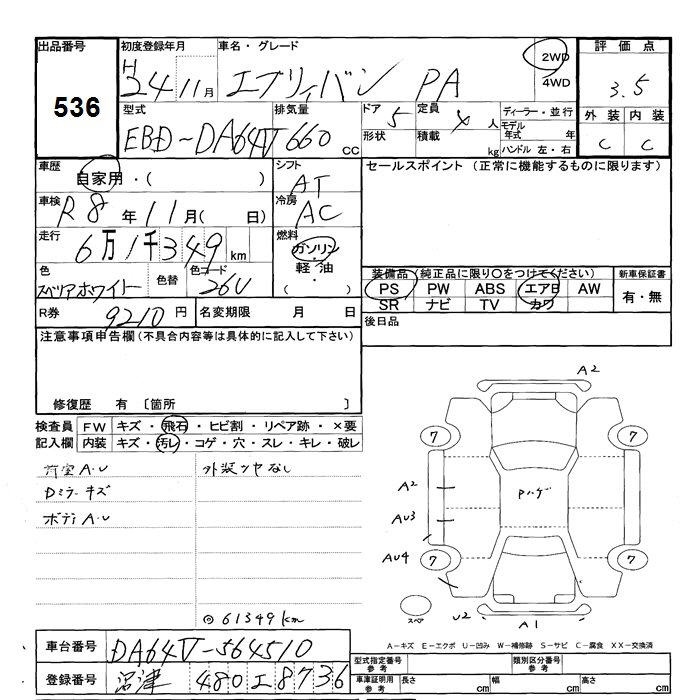 出品番号 初度登録年月 車名・グレード 2WD 評価点
536 H24 11月 エブリィバン PA 4WD 3.5
型式 排気量 ドア 5 定員 4人 ディーラー・並行 外装 内装
EBD-DA64V 660cc 形状 積載 kg モデル年式 年 C C
ハンドル 左・右
車歴 シフト セールスポイント(正常に機能するものに限ります)
自家用・( ) AT
車検 冷房
R8年11月( 日) AC
走行 燃料
6万1千349km ガソリン・軽油・( )
色 色替 色コード 装備品(純正品に限り○をつけてください) 新車保証書
スペリアホワイト 26U PS PW ABS エアB AW 有・無
SR ナビ TV カワ
R券 9210円 名変期限 月 日 後日品
注意事項申告欄(不具合内容等は具体的に記入して下さい)
修復歴 有 〔箇所 〕
検査員 FW キズ・飛石・ヒビ割・リペア跡・×要
記入欄 内装 キズ・汚レ・コゲ・穴・スレ・キレ・破レ
荷室A・U 外装ツヤなし
Dミラーキズ
ボディA・U
◎61349km
A2
7 7
A2 Pハゲ
AU3
AU4 7 7
スペア U2 A1
A-キズ E-エクボ U-凹み W-補修跡 S-サビ C-腐食 XX-交換済
車台番号 DA64V-564510 型式指定番号 参考 類別区分番号 参考
登録番号 沼津 480 エ 8736 車庫証明用 参考 長さ cm 幅 cm 高さ cm